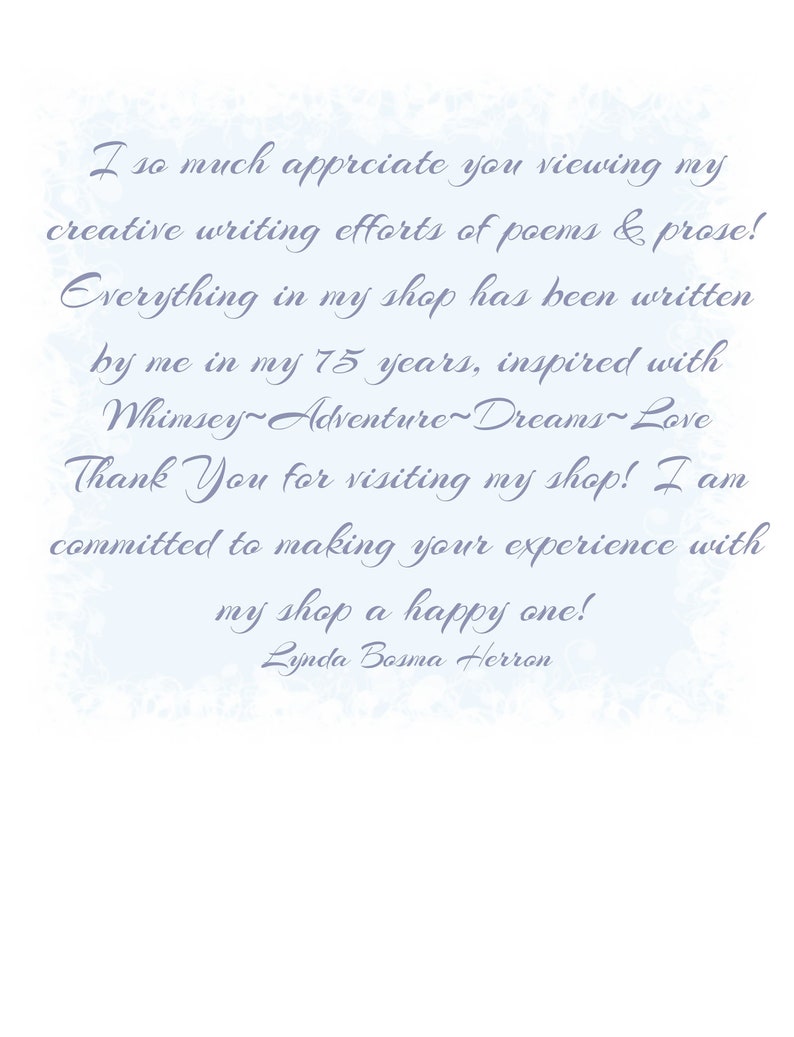 I so much apprciate you viewing my
creative writing efforts of poems & prose!
Everything in my shop has been written
by me in my 75 years, inspired with
Whimsey~Adventure~Dreams~Love
Thank You for visiting my shop! I am
committed to making your experience with
my shop a happy one!
Lynda Bosma Herron